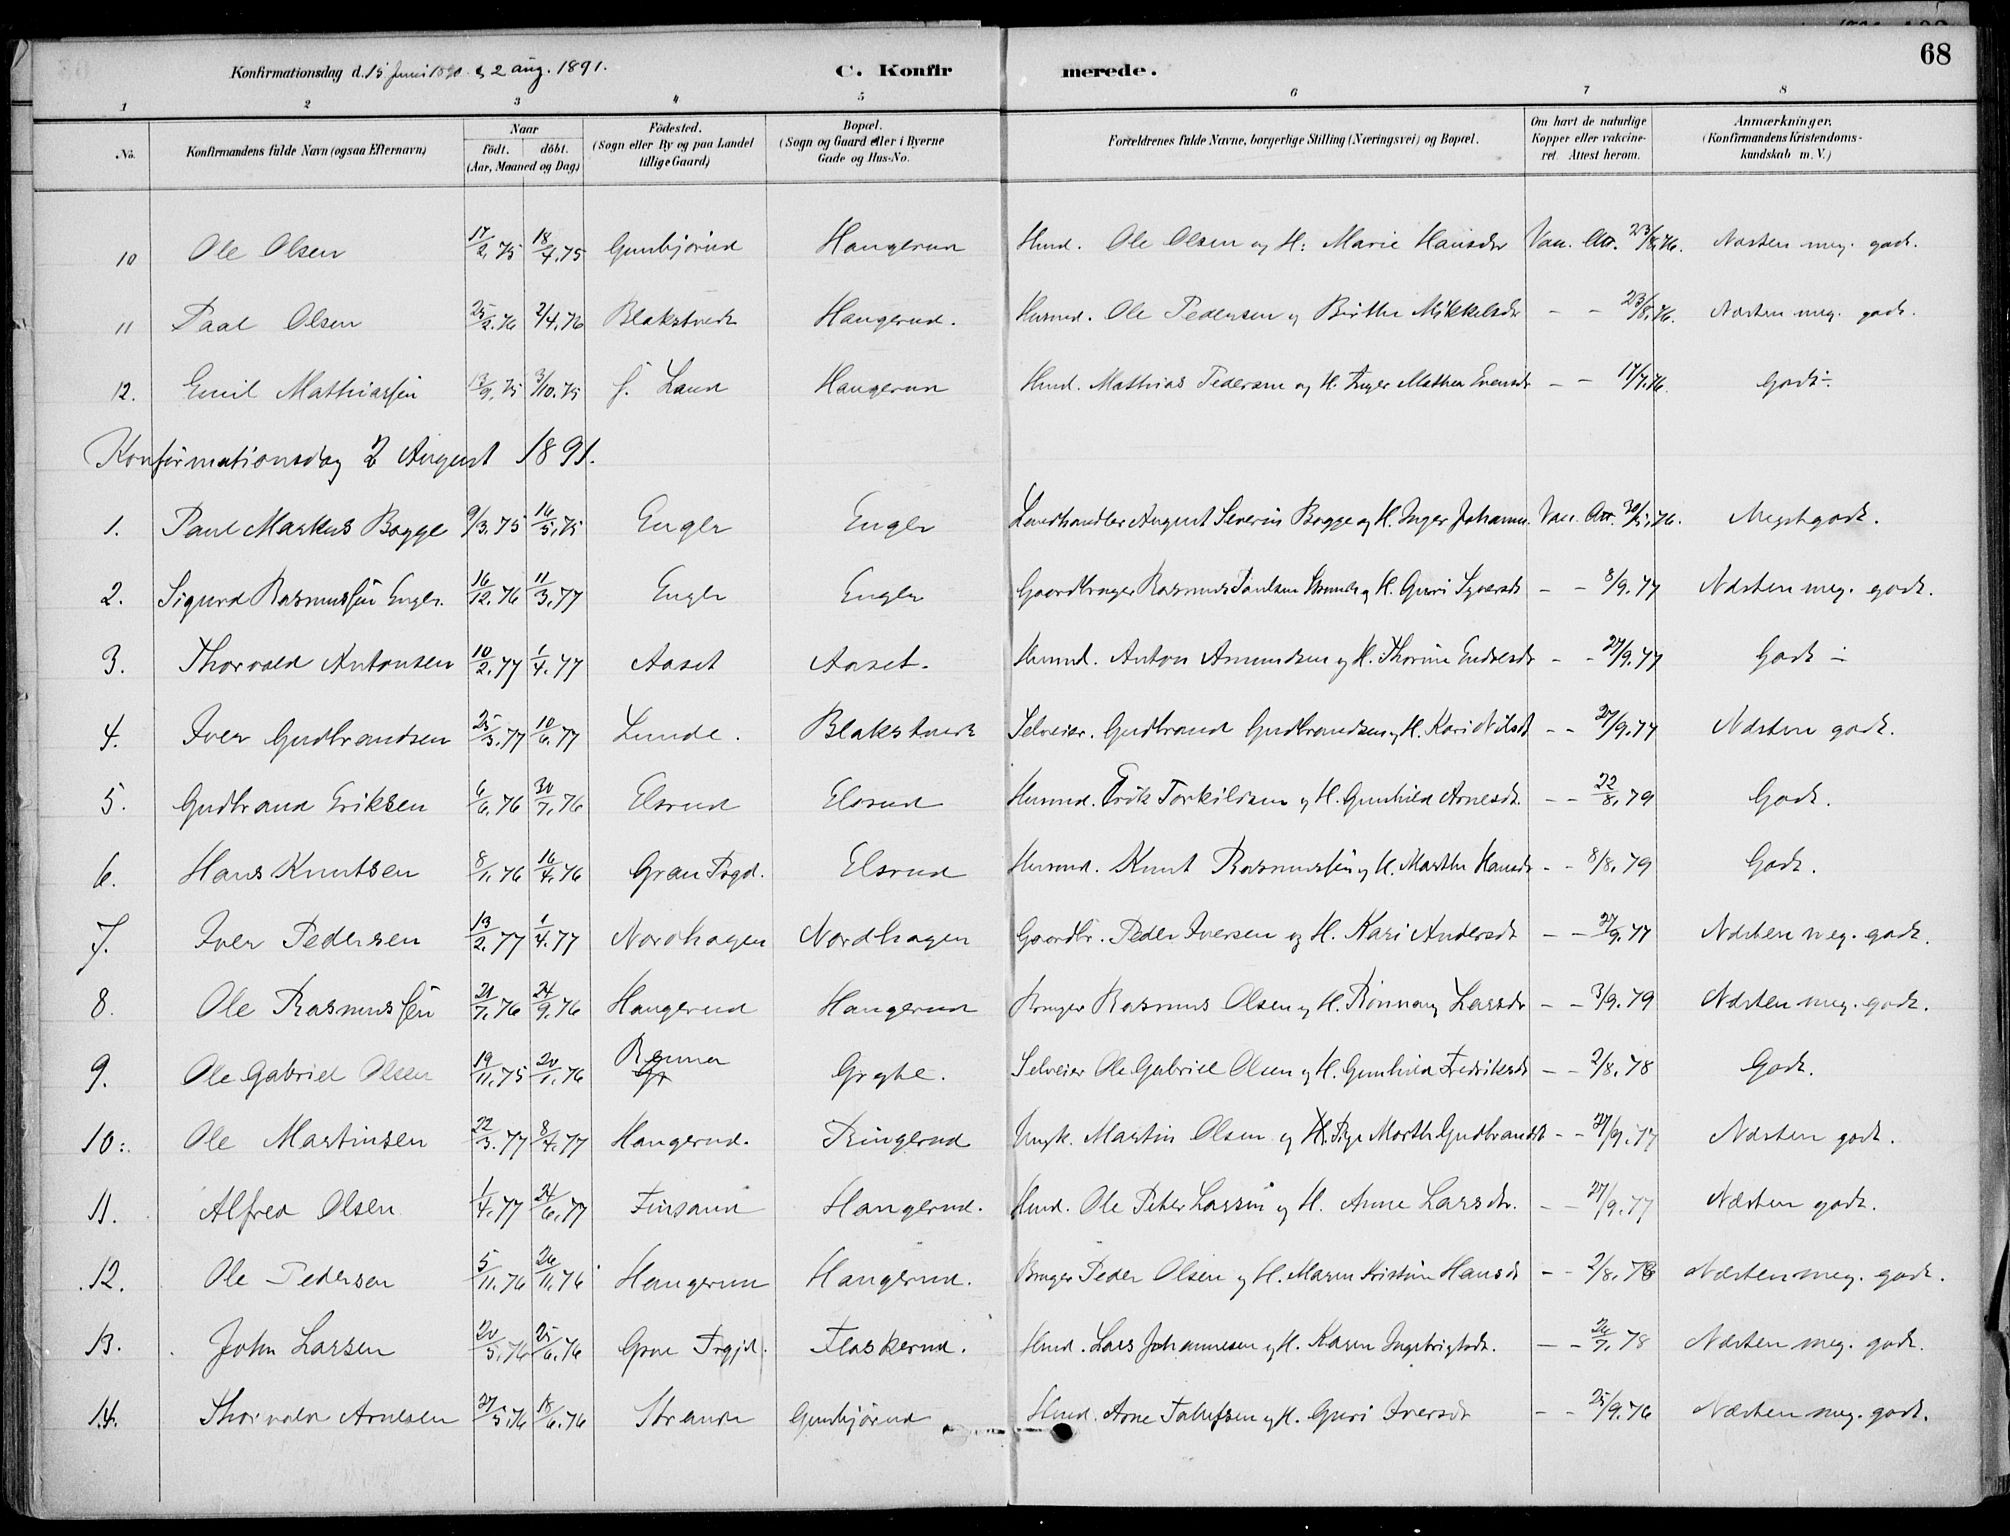 68
Konfirmationsdag d. 15 Juni 1890 & 2 aug. 1891.
C. Konfirmerede.
1 2 3 4 5 6 7 8
No. Konfirmandens fulde Navn (ogsaa Efternavn) Naar født. døbt. (Aar, Maaned og Dag) Fødested. (Sogn eller By og paa Landet tillige Gaard) Bopæl. (Sogn og Gaard eller i Byerne Gade og Hus-No. Forældrenes fulde Navne, borgerlige Stilling (Næringsvei) og Bopæl. Om havt de naturlige Kopper eller vakcineret. Attest herom. Anmærkninger. (Konfirmandens Kristendomskundskab m. V.)
10 Ole Olsen 17/2.75 18/4.75 Gunbjørud Haugerud Hmd. Ole Olsen og H: Marie Hansdr Vac. Att. 23/8.76. Næsten meg. godt.
11 Paal Olsen 25/2.76 2/4.76 Blakstvedt Haugerud. Husmd. Ole Pedersen og Birthe Mikkelsdr - - 23/8.76. Næsten meg. godt.
12. Emil Mathiassen 13/9.75 3/10.75 S. Land Haugerud Hmd. Mathias Pedersen og H. Inger Mathea Evensdr - - 17/7.76. Godt -.
Konfirmationsdag 2 August 1891.
1. Paul Markus Bogge 9/3.75 16/5.75 Enger Enger Landhandler August Severin Bogge og H. Inger Johanne. Vac. Att. 30/5.76. Meget godt.
2. Sigurd Rasmussen Enger. 16/12.76 11/3.77 Enger Enger Gaardbruger Rasmus Paulsen og H. Guri Syversdr - - 8/9.77 Næsten meg. godt.
3. Thorvald Antonsen 10/2.77 1/4.77 Aaset Aaset. Husmd. Anton Amundsen og H. Thorine Endresdr - - 27/9.77 Godt -
4. Iver Gudbrandsen 25/3.77 10/6.77 Lunde. Blakstvedt Selveier. Gudbrand Gudbrandsen og H. Kari Nilsdr - - 27/9.77 Næsten godt.
5. Gudbrand Eriksen 6/6.76 30/7.76 Elsrud Elsrud Husmd. Erik Torkildsen og H. Gunhild Arnesdr. - - 22/8.79 Godt.
6. Hans Knutsen 8/1.76 16/4.76 Gran Prgd. Elsrud Husmd. Knut Rasmussen og H. Marthe Hansdr - - 8/8.79 Godt.
7. Iver Pedersen 13/2.77 1/4.77 Nordhagen Nordhagen Gaardbr. Peder Iversen og H. Kari Andersdr - - 27/9.77 Næsten meg. godt.
8. Ole Rasmussen 21/7.76 24/9.76 Haugerud Haugerud Bruger Rasmus Olsen og H. Rønnaug Larsdr - - 3/9.79 Næsten meg. godt.
9. Ole Gabriel Olsen 19/11.75 20/1.76 Grythe. Selveier Ole Gabriel Olsen og H. Gunhild Fredriksdr - - 2/8.78 Godt.
10. Ole Martinsen 22/3.77 8/4.77 Haugerud. Ringerud Ungk. Martin Olsen og Pige Marthe Gudbrandsdr - - 27/9.77 Næsten godt.
11. Alfred Olsen 1/4.77 24/6.77 Finsand Haugerud. Hmd. Ole Peter Larsen og H. Anne Larsdr. - - 27/9.77 Næsten godt.
12. Ole Pedersen 5/11.76 26/11.76 Haugerud Haugerud. Bruger Peder Olsen og H. Maren Kristine Hansdr - - 2/8.78 Næsten meg. godt.
13. John Larsen 20/5.76 25/6.76 Gran Prgjd. Flaskerud. Hmd. Lars Johannesen og H. Karen Ingebrigtsdr. - - 26/7.78 Næsten meg. godt.
14. Thorvald Arnesen 27/5.76 18/6.76 Strande Gunbjørud Hmd. Arne Tollefsen og H. Guri Iversdr - - 25/9.76 Næsten meg. godt.